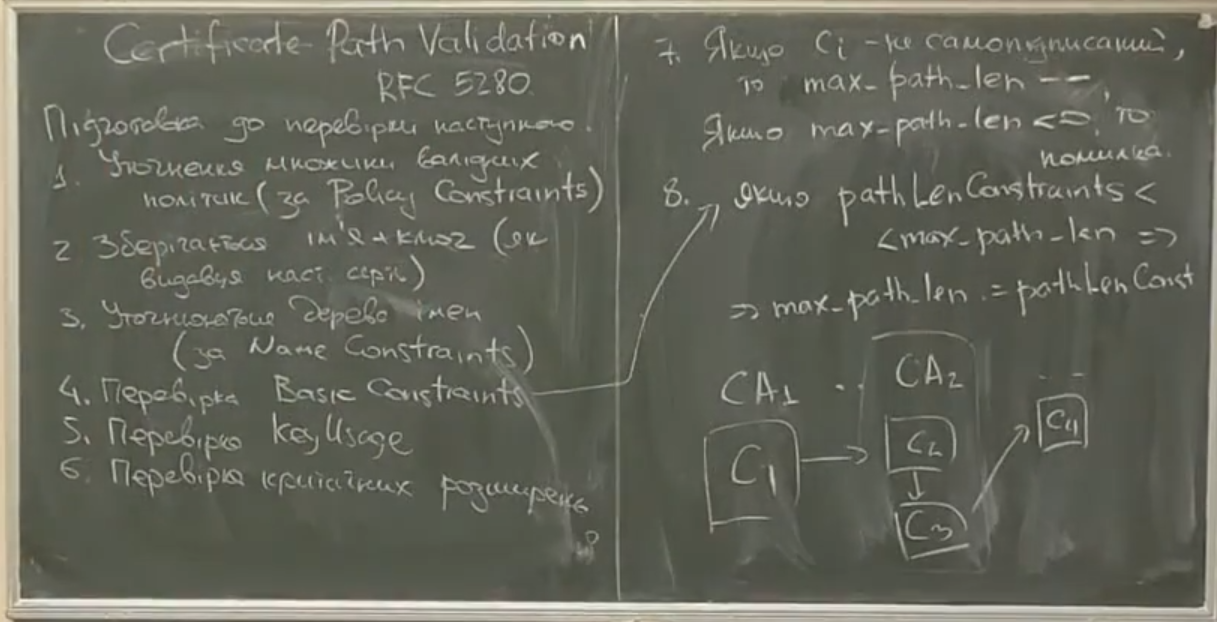 Certificate Path Validation
RFC 5280
Підготовка до перевірки наступного.
1. Уточнення множини валідних
політик (за Policy Constraints)
2 Зберігається ім'я + ключ (як
видавця наст. серт.)
3. Уточнюється дерево імен
(за Name Constraints)
4. Перевірка Basic Constraints
5. Перевірка KeyUsage
6. Перевірка критичних розширень
7. Якщо Ci - не самопідписаний,
то max_path_len --,
Якщо max_path_len <0, то
помилка.
8. Якщо pathLenConstraints <
<max_path_len =>
=> max_path_len := pathLenConst
CA1 .. CA2 --
C1 → C2 C4
C3